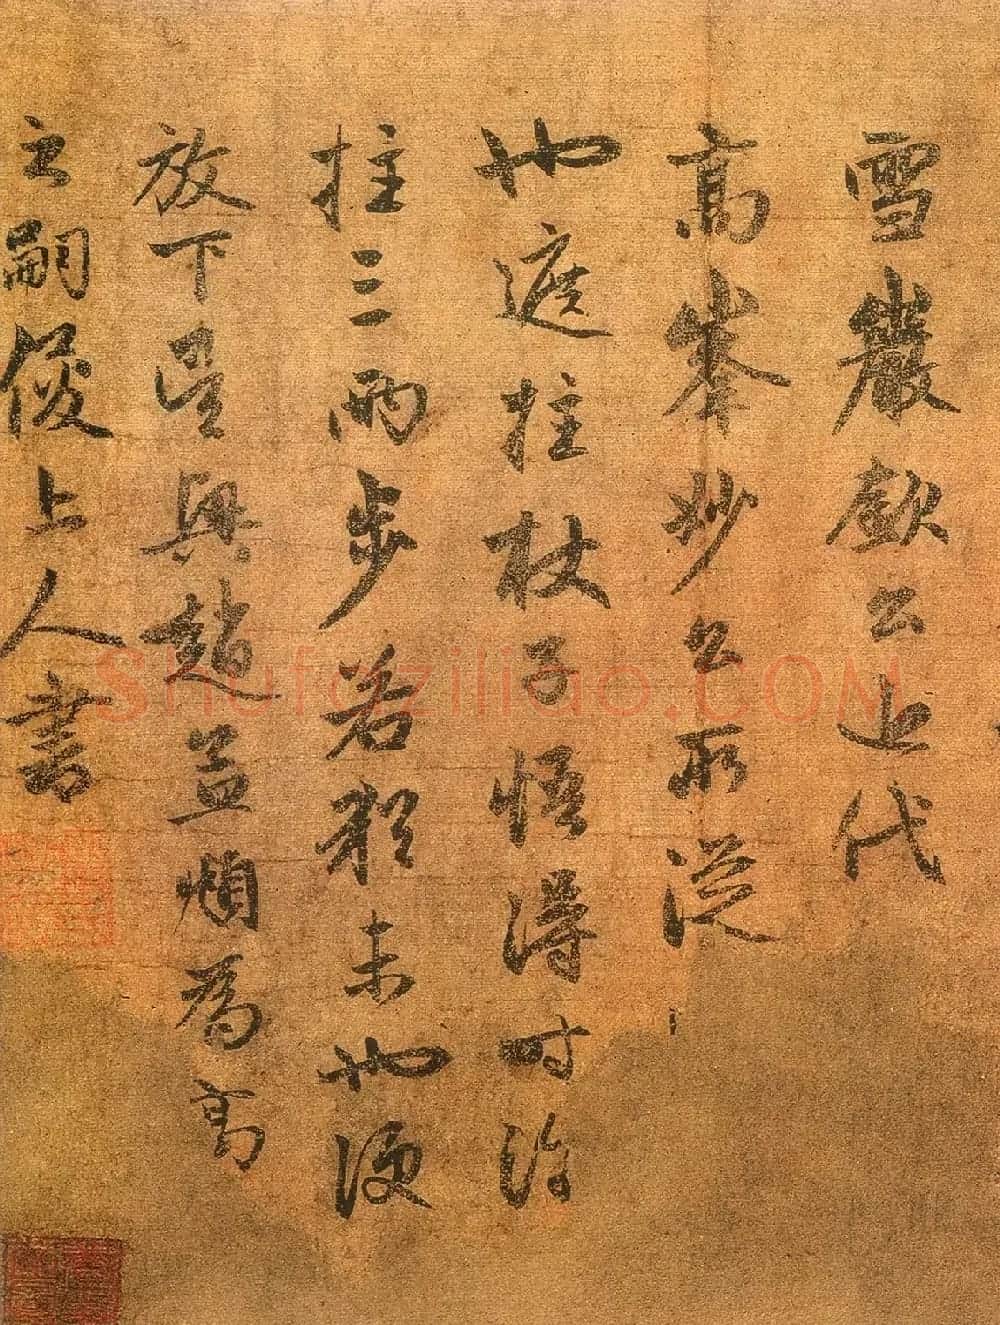 雪巖欽公代
高峯妙公所從
也遮拄杖子悟得時許
拄三兩步若猶未也便
放下吳興趙孟頫為高
之嗣俊上人書
Shufaziliao.COM